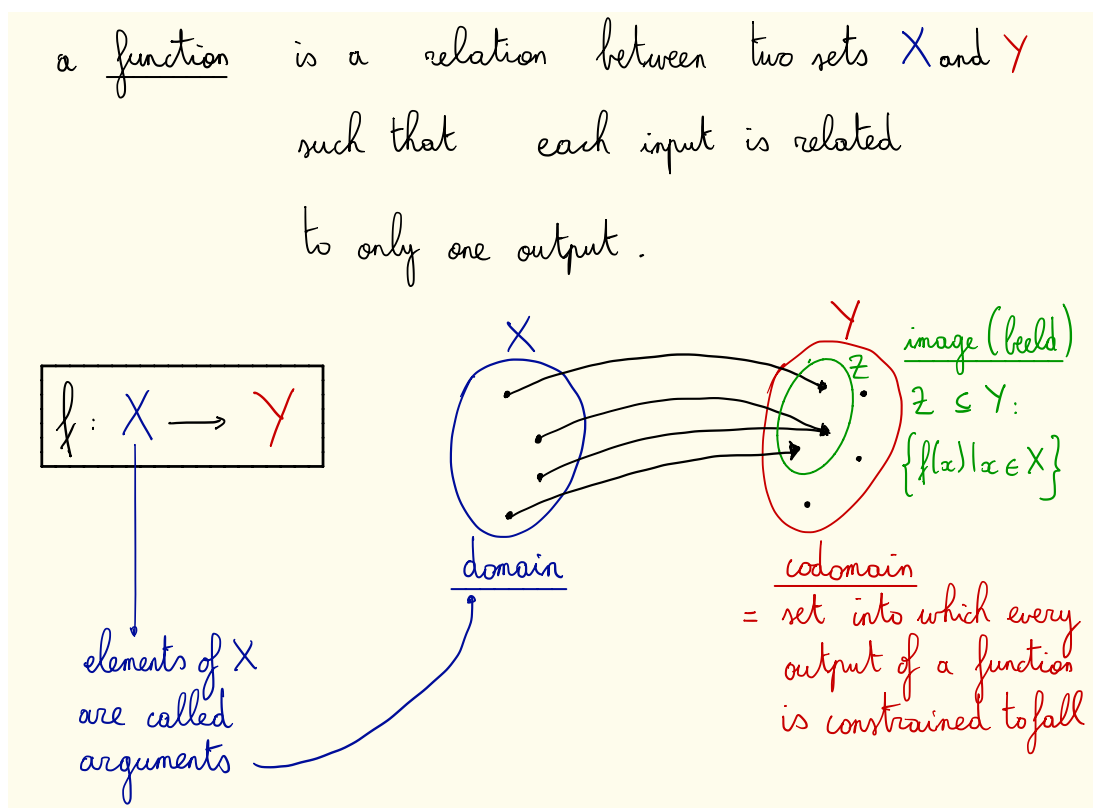 a function is a relation between two sets X and Y
such that each input is related
to only one output.
X
Y
Z
image (beeld)
Z ⊆ Y:
{f(x)|x ∈ X}
f : X → Y
domain
codomain
= set into which every
output of a function
is constrained to fall
elements of X
are called
arguments